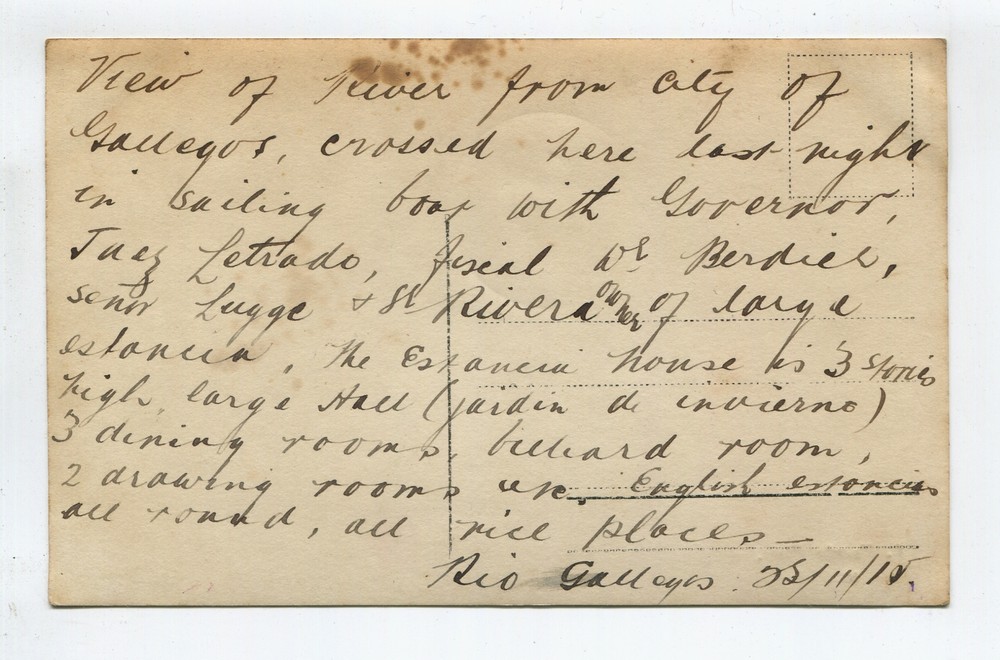 View of River from city of
Gallegos, crossed here last night
in sailing boat with Governor,
Juez Letrado, fiscal Dr Berdiel,
señor Lugge & Sr Rivera owner of large
estancia, The Estancia house is 3 stories
high, large Hall (jardin de invierno)
3 dining rooms, billiard room,
2 drawing rooms etc. English estancias
all round, all nice places—
Rio Gallegos